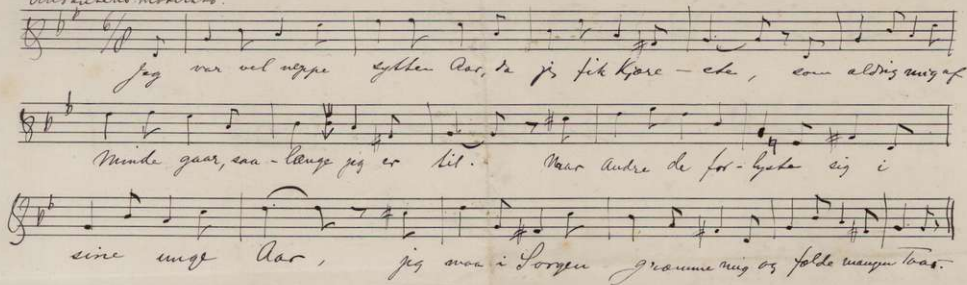 6/8
Jeg var vel neppe sytten Aar, da jeg fik Kjære - ste, som aldrig mig af
Minde gaar, saa - længe jeg er til. Naar andre de for - lyste sig i
sine unge Aar, jeg maa i Sorgen græmme mig og fælde mangen Taar.